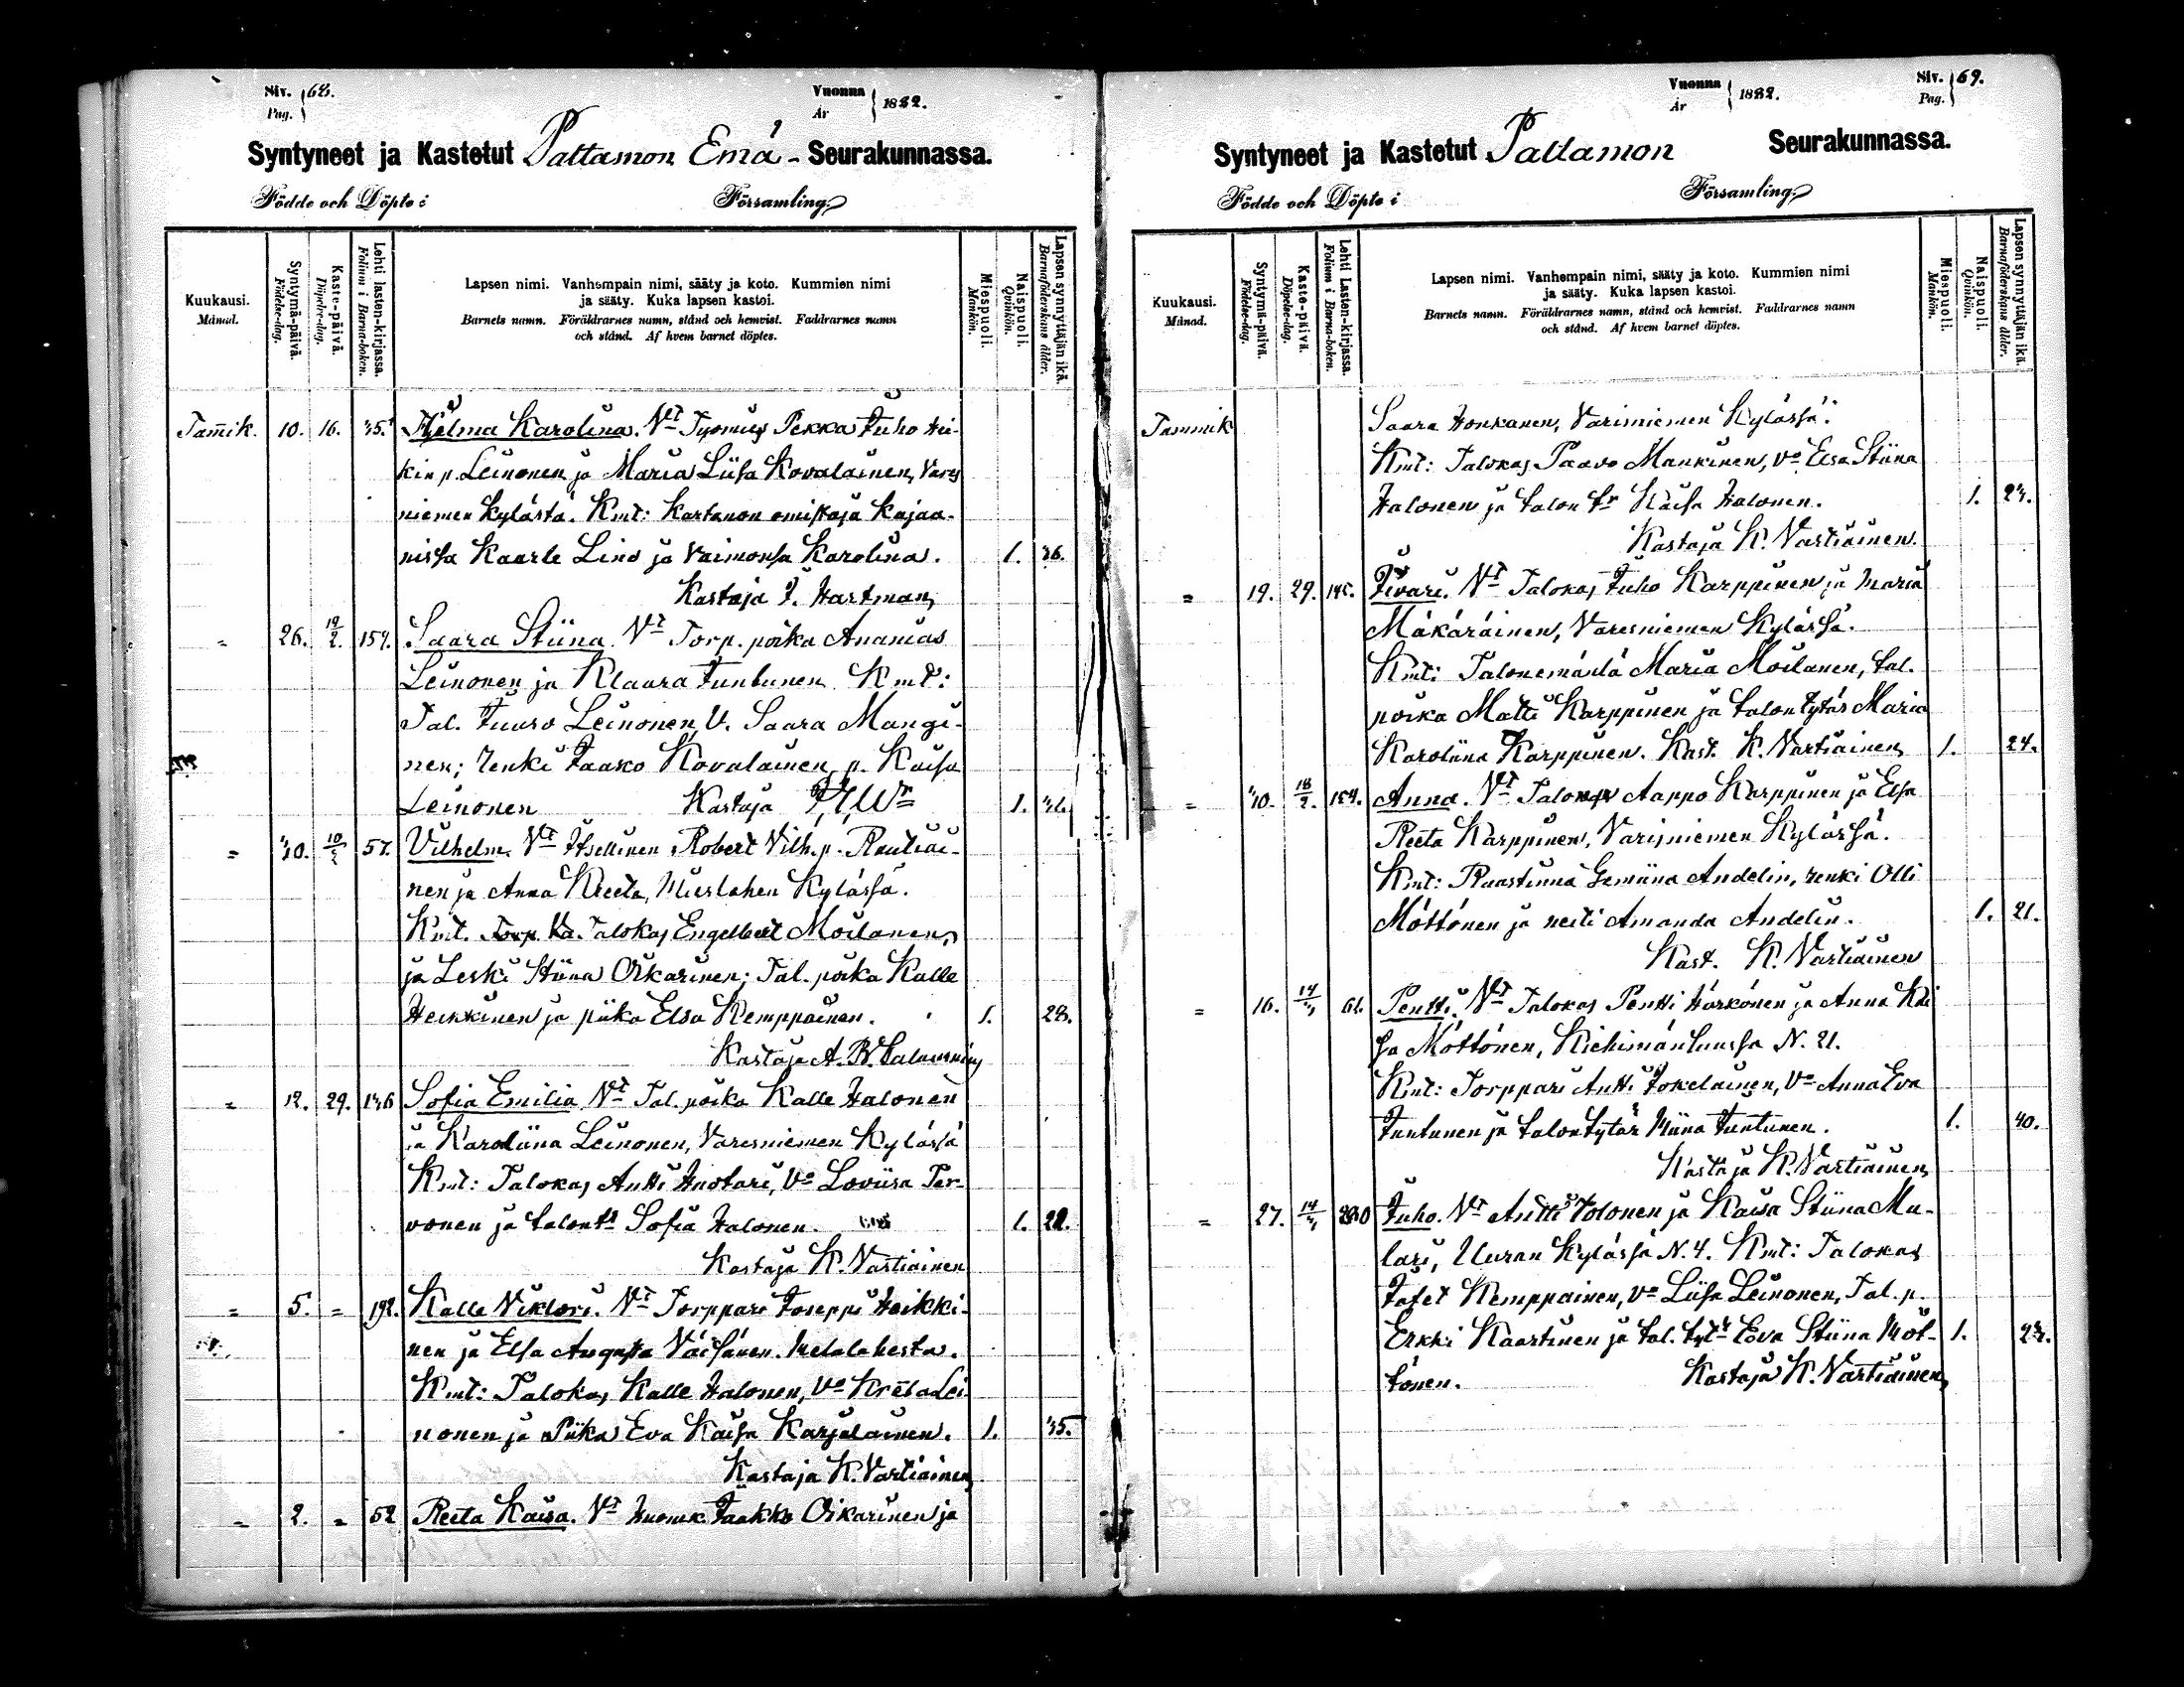 Siv. Pag. 68.
Vuonna År 1882.
Syntyneet ja Kastetut Paltamon Emä- Seurakunnassa.
Födde och Döpte i Församling
Kuukausi. Månad.
Syntymä-päivä. Födelse-dag.
Kaste-päivä. Döpelse-dag.
Lehti lasten-kirjassa. Folium i Barna-boken.
Lapsen nimi. Vanhempain nimi, sääty ja koto. Kummien nimi
ja sääty. Kuka lapsen kastoi.
Barnets namn. Föräldrarnes namn, stånd och hemvist. Faddrarnes namn
och stånd. Af hvem barnet döptes.
Miespuoli. Mankön.
Naispuoli. Qvinkön.
Lapsen synnyttäjän ikä. Barnaföderskans ålder.
Tam̄ik. 10. 16. 35. Hjelma Karolina. Vt Työmies Pekka Juho Hei-
kin p. Leinonen ja Maria Liisa Kovalainen, Vares
niemen kylästä. Kmt: Kartanon omistaja Kajaa-
nissa Kaarle Lind ja Vaimonsa Karolina. 1. 36.
Kastaja J. Hartman,
" 26. 19/2. 157. Saara Stiina. Vt Torp. poika Ananias
Leinonen ja Klaara Juntunen. Kmt:
Tal. Juuso Leinonen, V. Saara Mangi-
nen; renki Jaako Kovalainen, p. Kaisa
Leinonen Kastaja 1.
" 30. 57. Vilhelm. Vt Itsellinen Robert Vilh. p. Rautiai-
nen ja Anna Kreeta, Mieslahen Kylässä.
Kmt. Talokas Engelbert Moilanen,
ja Leski Stiina Oikarinen; Tal. poika Kalle
Heikkinen ja piika Elsa Kemppainen. 1. 28.
Kastaja A. W.
" 12. 29. 146 Sofia Emilia Vt Tal. poika Kalle Halonen
ja Karoliina Leinonen, Varesniemen Kylässä
Kmt: Talokas Antti Huotari, Vo Loviisa Ter-
vonen ja talon tr Sofia Halonen. 1. 22.
Kastaja K. Vartiainen
" 5. " 192. Kalle Viktori. Vt Torppari Joseppi Heikki-
nen ja Elsa Augusta Väisänen. Melalahesta.
Kmt: Talokas Kalle Halonen, Vo Kreta Lei-
nonen ja Piika Eva Kaisa Karjalainen. 1. 35.
Kastaja K. Vartiainen,
" 2. " 52 Reeta Kaisa. Vt Huonek. Jaakko Oikarinen ja
Siv. Pag. 69.
Vuonna År 1882.
Syntyneet ja Kastetut Paltamon Seurakunnassa.
Födde och Döpte i Församling
Kuukausi. Månad.
Syntymä-päivä. Födelse-dag.
Kaste-päivä. Döpelse-dag.
Lehti Lasten-kirjassa. Folium i Barna-boken.
Lapsen nimi. Vanhempain nimi, sääty ja koto. Kummien nimi
ja sääty. Kuka lapsen kastoi.
Barnets namn. Föräldrarnes namn, stånd och hemvist. Faddrarnes namn
och stånd. Af hvem barnet döptes.
Miespuoli. Mankön.
Naispuoli. Qvinkön.
Lapsen synnyttäjän ikä. Barnaföderskans ålder.
Tammik Saara Honkanen, Varisniemen Kylässä.
Kmt: Talokas Paavo Mankinen, Vo Elsa Stiina
Halonen ja talon tr Kaisa Halonen. 1.
Kastaja K. Vartiainen.
" 19. 29. 145. Iivari. Vt Talokas Juho Karppinen ja Maria
Mäkäräinen, Varesniemen Kylässä.
Kmt: Talonemäntä Maria Moilanen, tal.
poika Matti Karppinen ja talon tytär Maria
Karoliina Karppinen. Kast. K. Vartiainen 1. 24.
" 30. 18/2. 154. Anna. Vt Talokas Aappo Karppinen ja Elsa
Reeta Karppinen, Varisniemen Kylässä.
Kmt: Ruustinna Gemiina Andelin, renki Olli
Möttönen ja neiti Amanda Andelin. 1. 21.
Kast. K. Vartiainen
" 16. 61. Pentti. Vt Talokas Pentti Härkönen ja Anna Kai
sa Möttönen, Kiehimänsuussa N. 21.
Kmt: Torppari Antti Jokelainen, Vo Anna Eva
Juntunen ja talon tytär Miina Juntunen. 1. 40.
Kastaja K. Vartiainen
" 27. Juho. Vt Antti Tolonen ja Kaisa Stiina Mu-
lari, Uuran Kylässä N. 4. Kmt: Talokas
Jafet Kemppainen, Vo Liisa Leinonen, Tal. p.
Erkki Kaartinen ja tal. tytr Eva Stiina Möt- 1.
tönen. Kastaja K. Vartiainen,